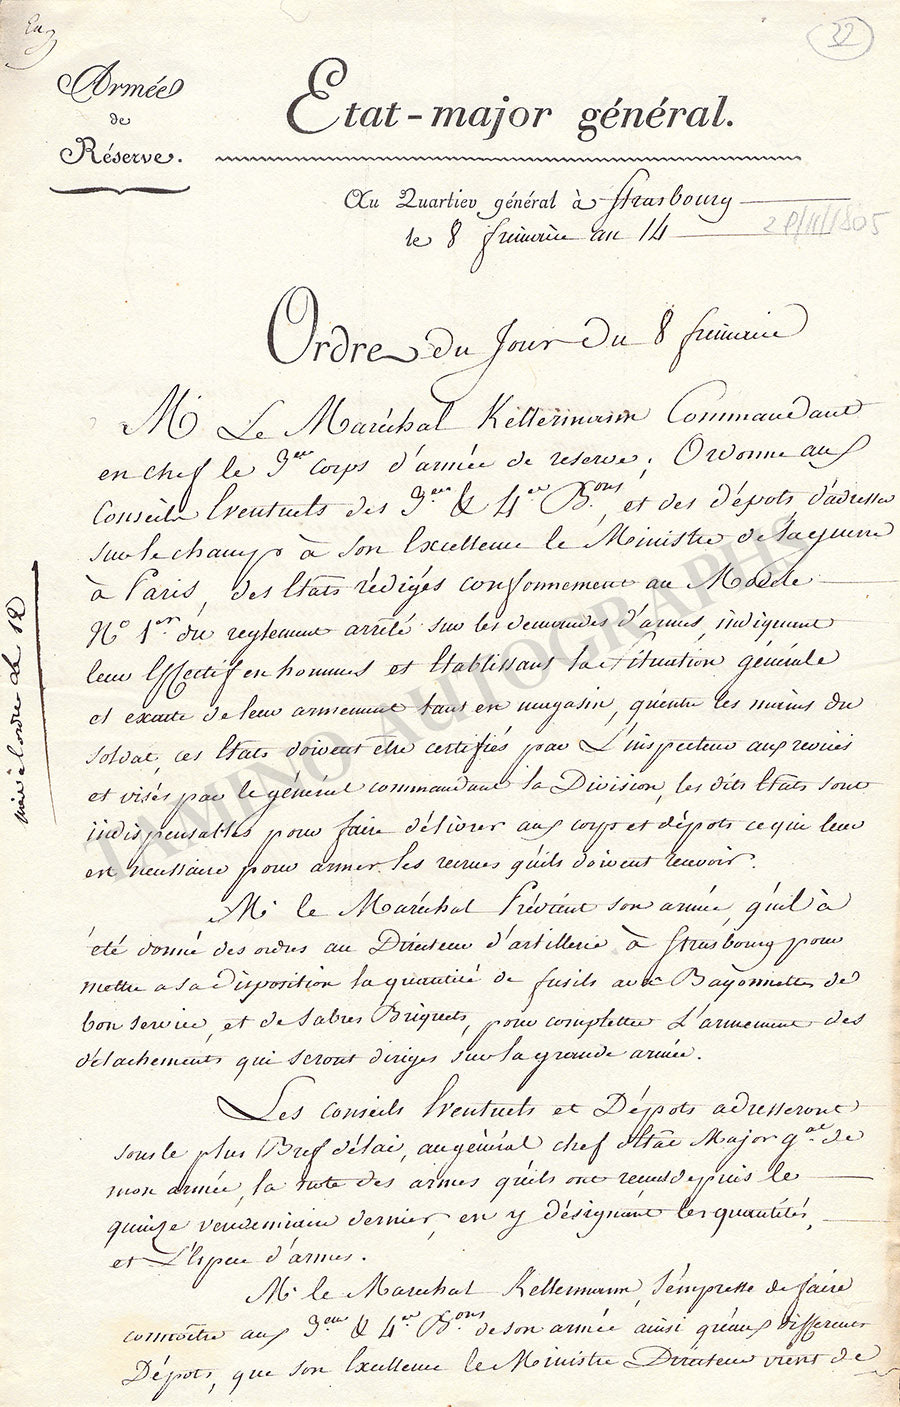 32
Armée
de
Réserve.
Etat-major général.
Au Quartier général à Strasbourg
le 8 frimaire an 14
29/11/1805
Ordre du Jour du 8 frimaire
Mr Le Maréchal Kellermann Commandant
en chef le 3eme corps d'armée de reserve, Ordonne aux
Conseils Eventuels des 3eme & 4eme Bons, et des dépots d'adresser
sur le champ à son Excellence le Ministre de la guerre
à Paris, des Etats rédigés conformement au Modele
No 1er du reglement arrêté sur les demandes d'armes, indiquant
leur Effectif en hommes et Etablissant la Situation générale
et exacte de leur armement tant en magasin, qu'entre les mains du
soldat, ces Etats doivent être certifiés par L'inspecteur aux revues
et visés par le général commandant la Division, les dits Etats sont
indispensables pour faire délivrer aux corps et dépots ce qui leur
est necessaire pour armer les recrues qu'ils doivent recevoir.
Mr le Maréchal Prévient son armée, qu'il à
été donné des ordres au Directeur d'artillerie à Strasbourg pour
mettre a sa disposition la quantité de fusils avec Bayonnettes de
bon service, et de Sabres Briquets, pour completter L'armement des
détachements qui seront dirigés sur la grande armée.
Les conseils Eventuels et Dépots adresseront
sous le plus Bref délai, au général chef d'Etat Major gal de
mon armée, la note des armes qu'ils ont reçues depuis le
quinze vendemiaire dernier, en y désignant les quantités,
et L'Espece d'armes.
Mr le Marechal Kellermann, s'empresse de faire
connoître aux 3eme & 4eme Bons de son armée ainsi qu'aux differens
Dépots, que son Excellence le Ministre Directeur vient de
mis à l'ordre le 12
TAMINO AUTOGRAPHS